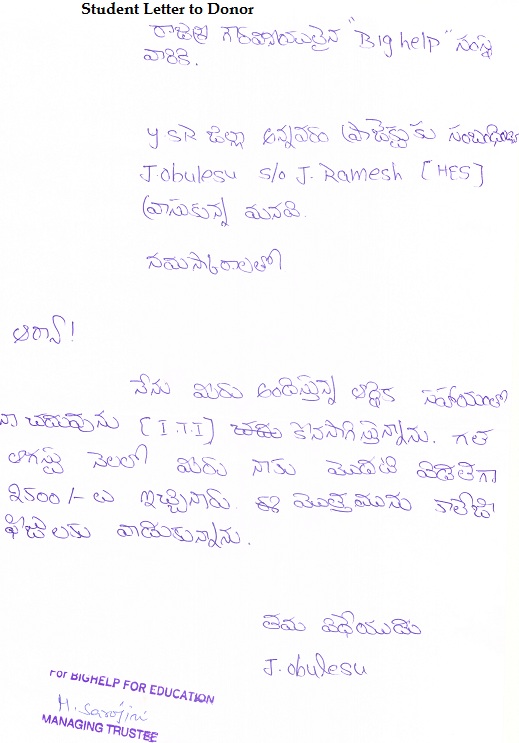 Student Letter to Donor
రాజశ్రీ గౌరవనీయులైన "Big help" సంస్థ
వారికి.
Y S R జిల్లా అన్నవరం ప్రాజెక్టుకు సంబంధించి
J.obulesu s/o J. Ramesh [HES]
వ్రాసుకున్న మనవి.
నమస్కారాలతో
ఆర్యా!
నేను మీరు అందిస్తున్న ఆర్థిక సహాయంతో
నా చదువును [I.T.I] కొనసాగిస్తున్నాను. గత
ఆగస్టు నెలలో మీరు నాకు మొదటి విడతగా
2500/- లు ఇచ్చినారు. ఈ మొత్తమును కాలేజి
ఫీజులకు వాడుకున్నాను.
తమ విధేయుడు
J. obulesu
For BIGHELP FOR EDUCATION
H. Sarojini
MANAGING TRUSTEE